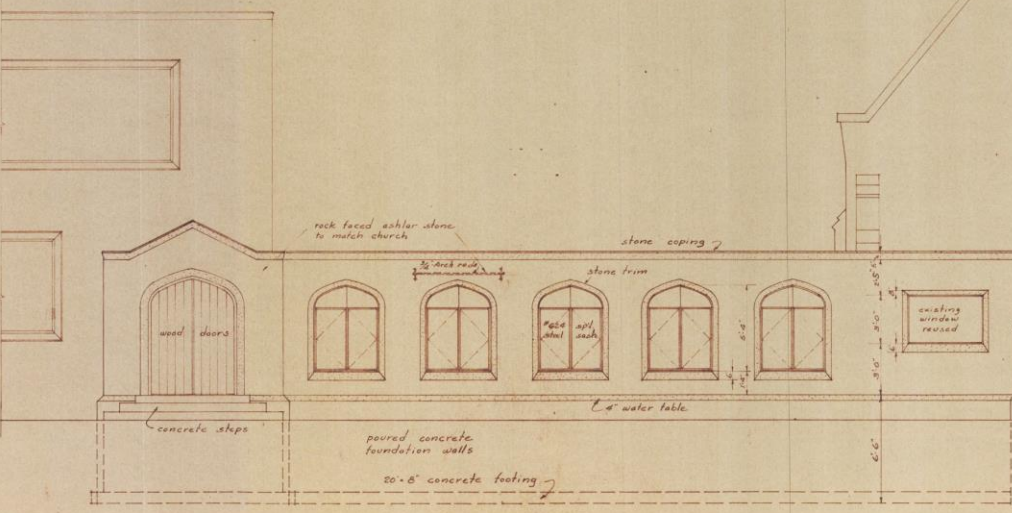 rock faced ashlar stone
to match church
stone coping
3/4" Arch rods
stone trim
wood doors
#454 spl.
steel sash
existing
window
reused
6'-4"
3'-0"
3'-0"
6"
6"
1'-4"
4" water table
concrete steps
poured concrete
foundation walls
6'-6"
20" x 8" concrete footing